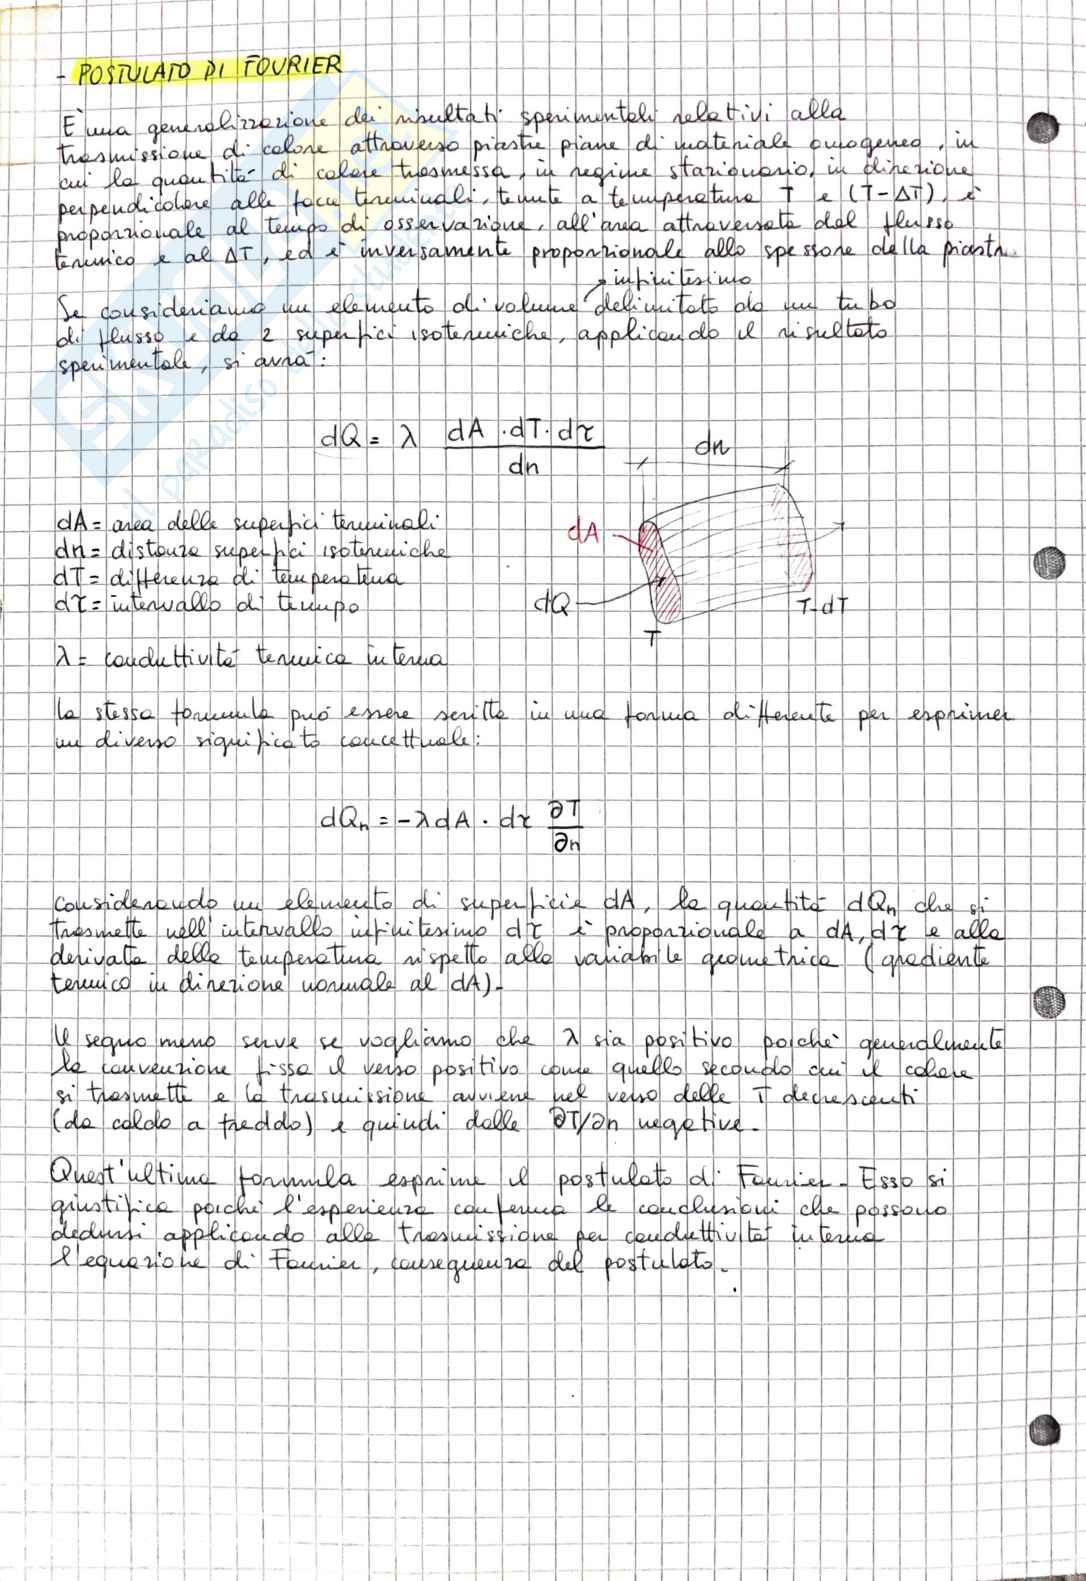 - POSTULATO DI FOURIER
È una generalizzazione dei risultati sperimentali relativi alla
trasmissione di calore attraverso piastre piane di materiale omogeneo, in
cui la quantità di calore trasmessa, in regime stazionario, in direzione
perpendicolare alle facce terminali, tenute a temperatura T e (T-ΔT), è
proporzionale al tempo di osservazione, all'area attraversata dal flusso
termico e al ΔT, ed è inversamente proporzionale allo spessore della piastra.
infinitesimo
Se consideriamo un elemento di volume delimitato da un tubo
di flusso e da 2 superfici isotermiche, applicando il risultato
sperimentale, si avrà:
dQ = λ dA · dT · dτ / dn
dn
dA = area delle superfici terminali
dn = distanza superfici isotermiche
dT = differenza di temperatura
dτ = intervallo di tempo
dA
dQ
T
T-dT
λ = conduttività termica interna
La stessa formula può essere scritta in una forma differente per esprimere
un diverso significato concettuale:
dQn = -λ dA · dτ ∂T/∂n
Considerando un elemento di superficie dA, la quantità dQn che si
trasmette nell'intervallo infinitesimo dτ è proporzionale a dA, dτ e alla
derivata della temperatura rispetto alla variabile geometrica (gradiente
termico in direzione normale al dA).
Il segno meno serve se vogliamo che λ sia positivo poichè generalmente
la convenzione fissa il verso positivo come quello secondo cui il calore
si trasmette e la trasmissione avviene nel verso delle T decrescenti
(da caldo a freddo) e quindi dalle ∂T/∂n negative.
Quest'ultima formula esprime il postulato di Fourier. Esso si
giustifica poichè l'esperienza conferma le conclusioni che possono
dedursi applicando alla trasmissione per conduttività interna
l'equazione di Fourier, conseguenza del postulato.